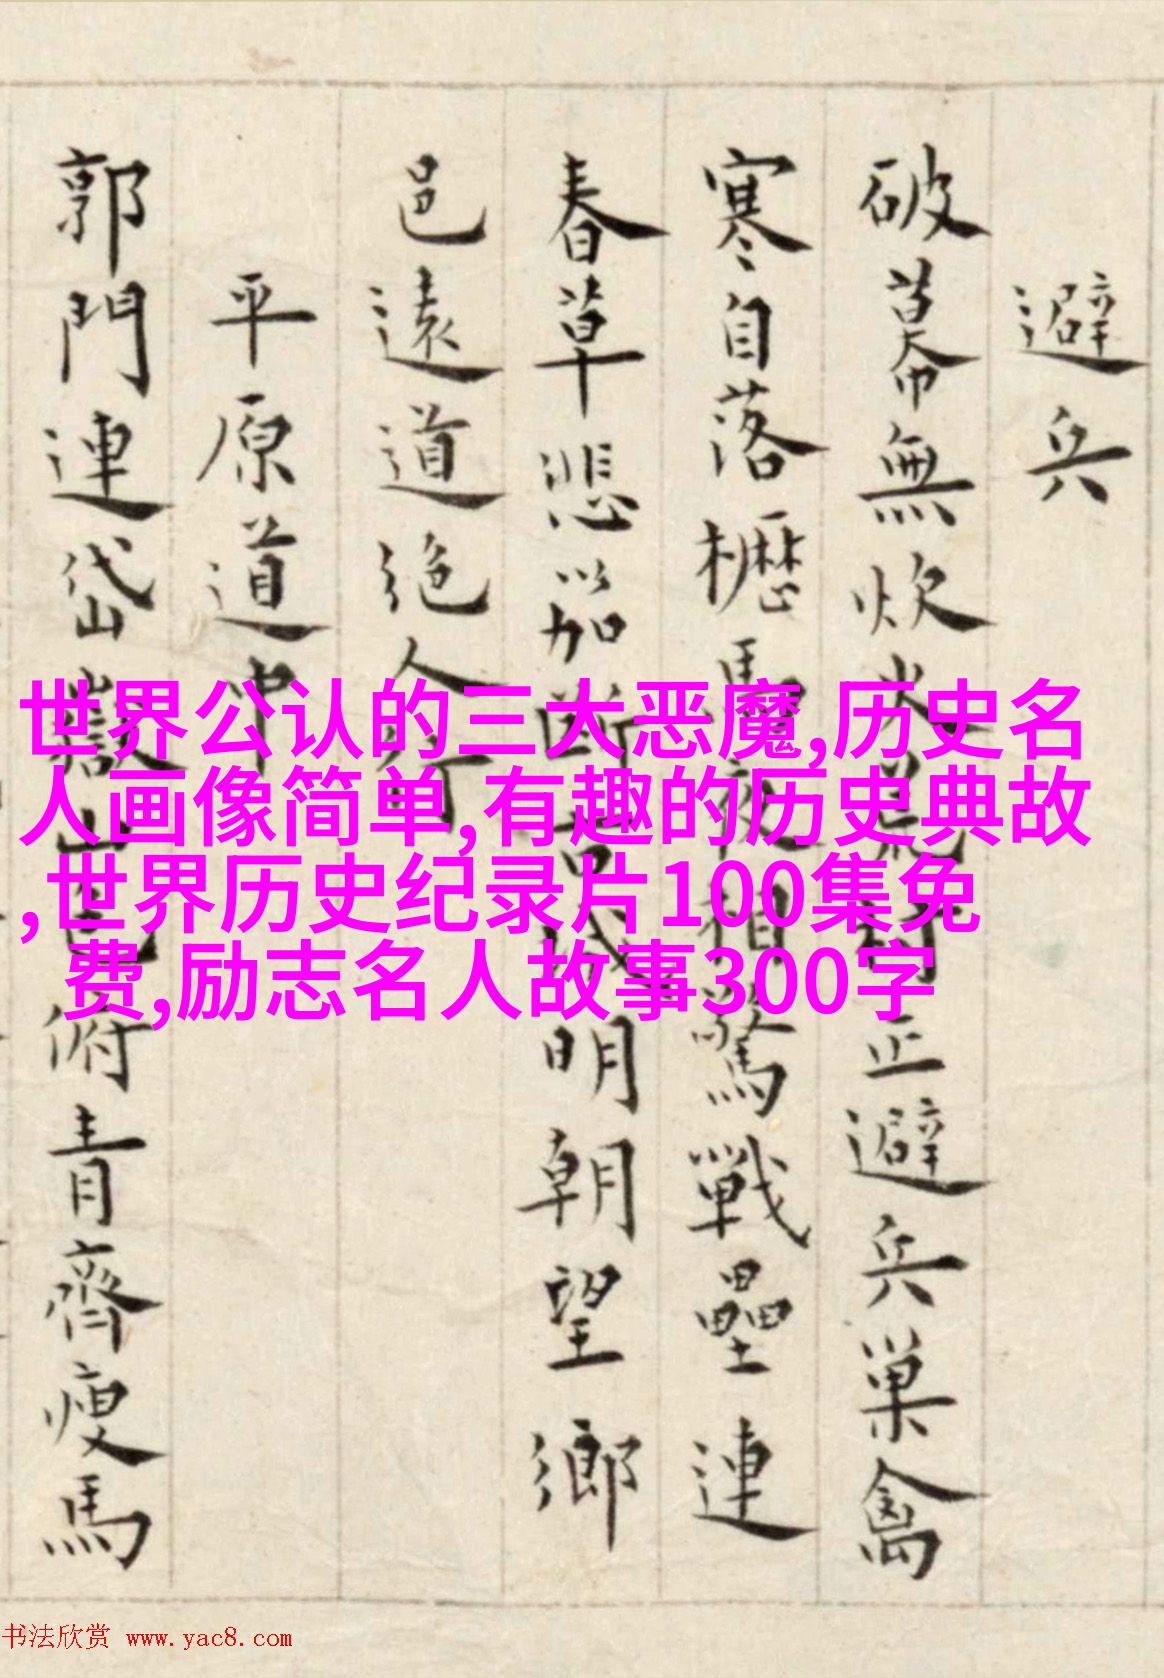 避兵
破幕無炊米正避兵巢禽
寒自落櫪馬夜相驚戰壘連
春草悲笳斷明朝望鄉
邑遠道絕人行
平原道中
郭門連岱嶽山色俯青齊瘦馬
世界公认的三大恶魔,历史名
人画像简单,有趣的历史典故
,世界历史纪录片100集免
费,励志名人故事300字
书法欣赏 www.yac8.com